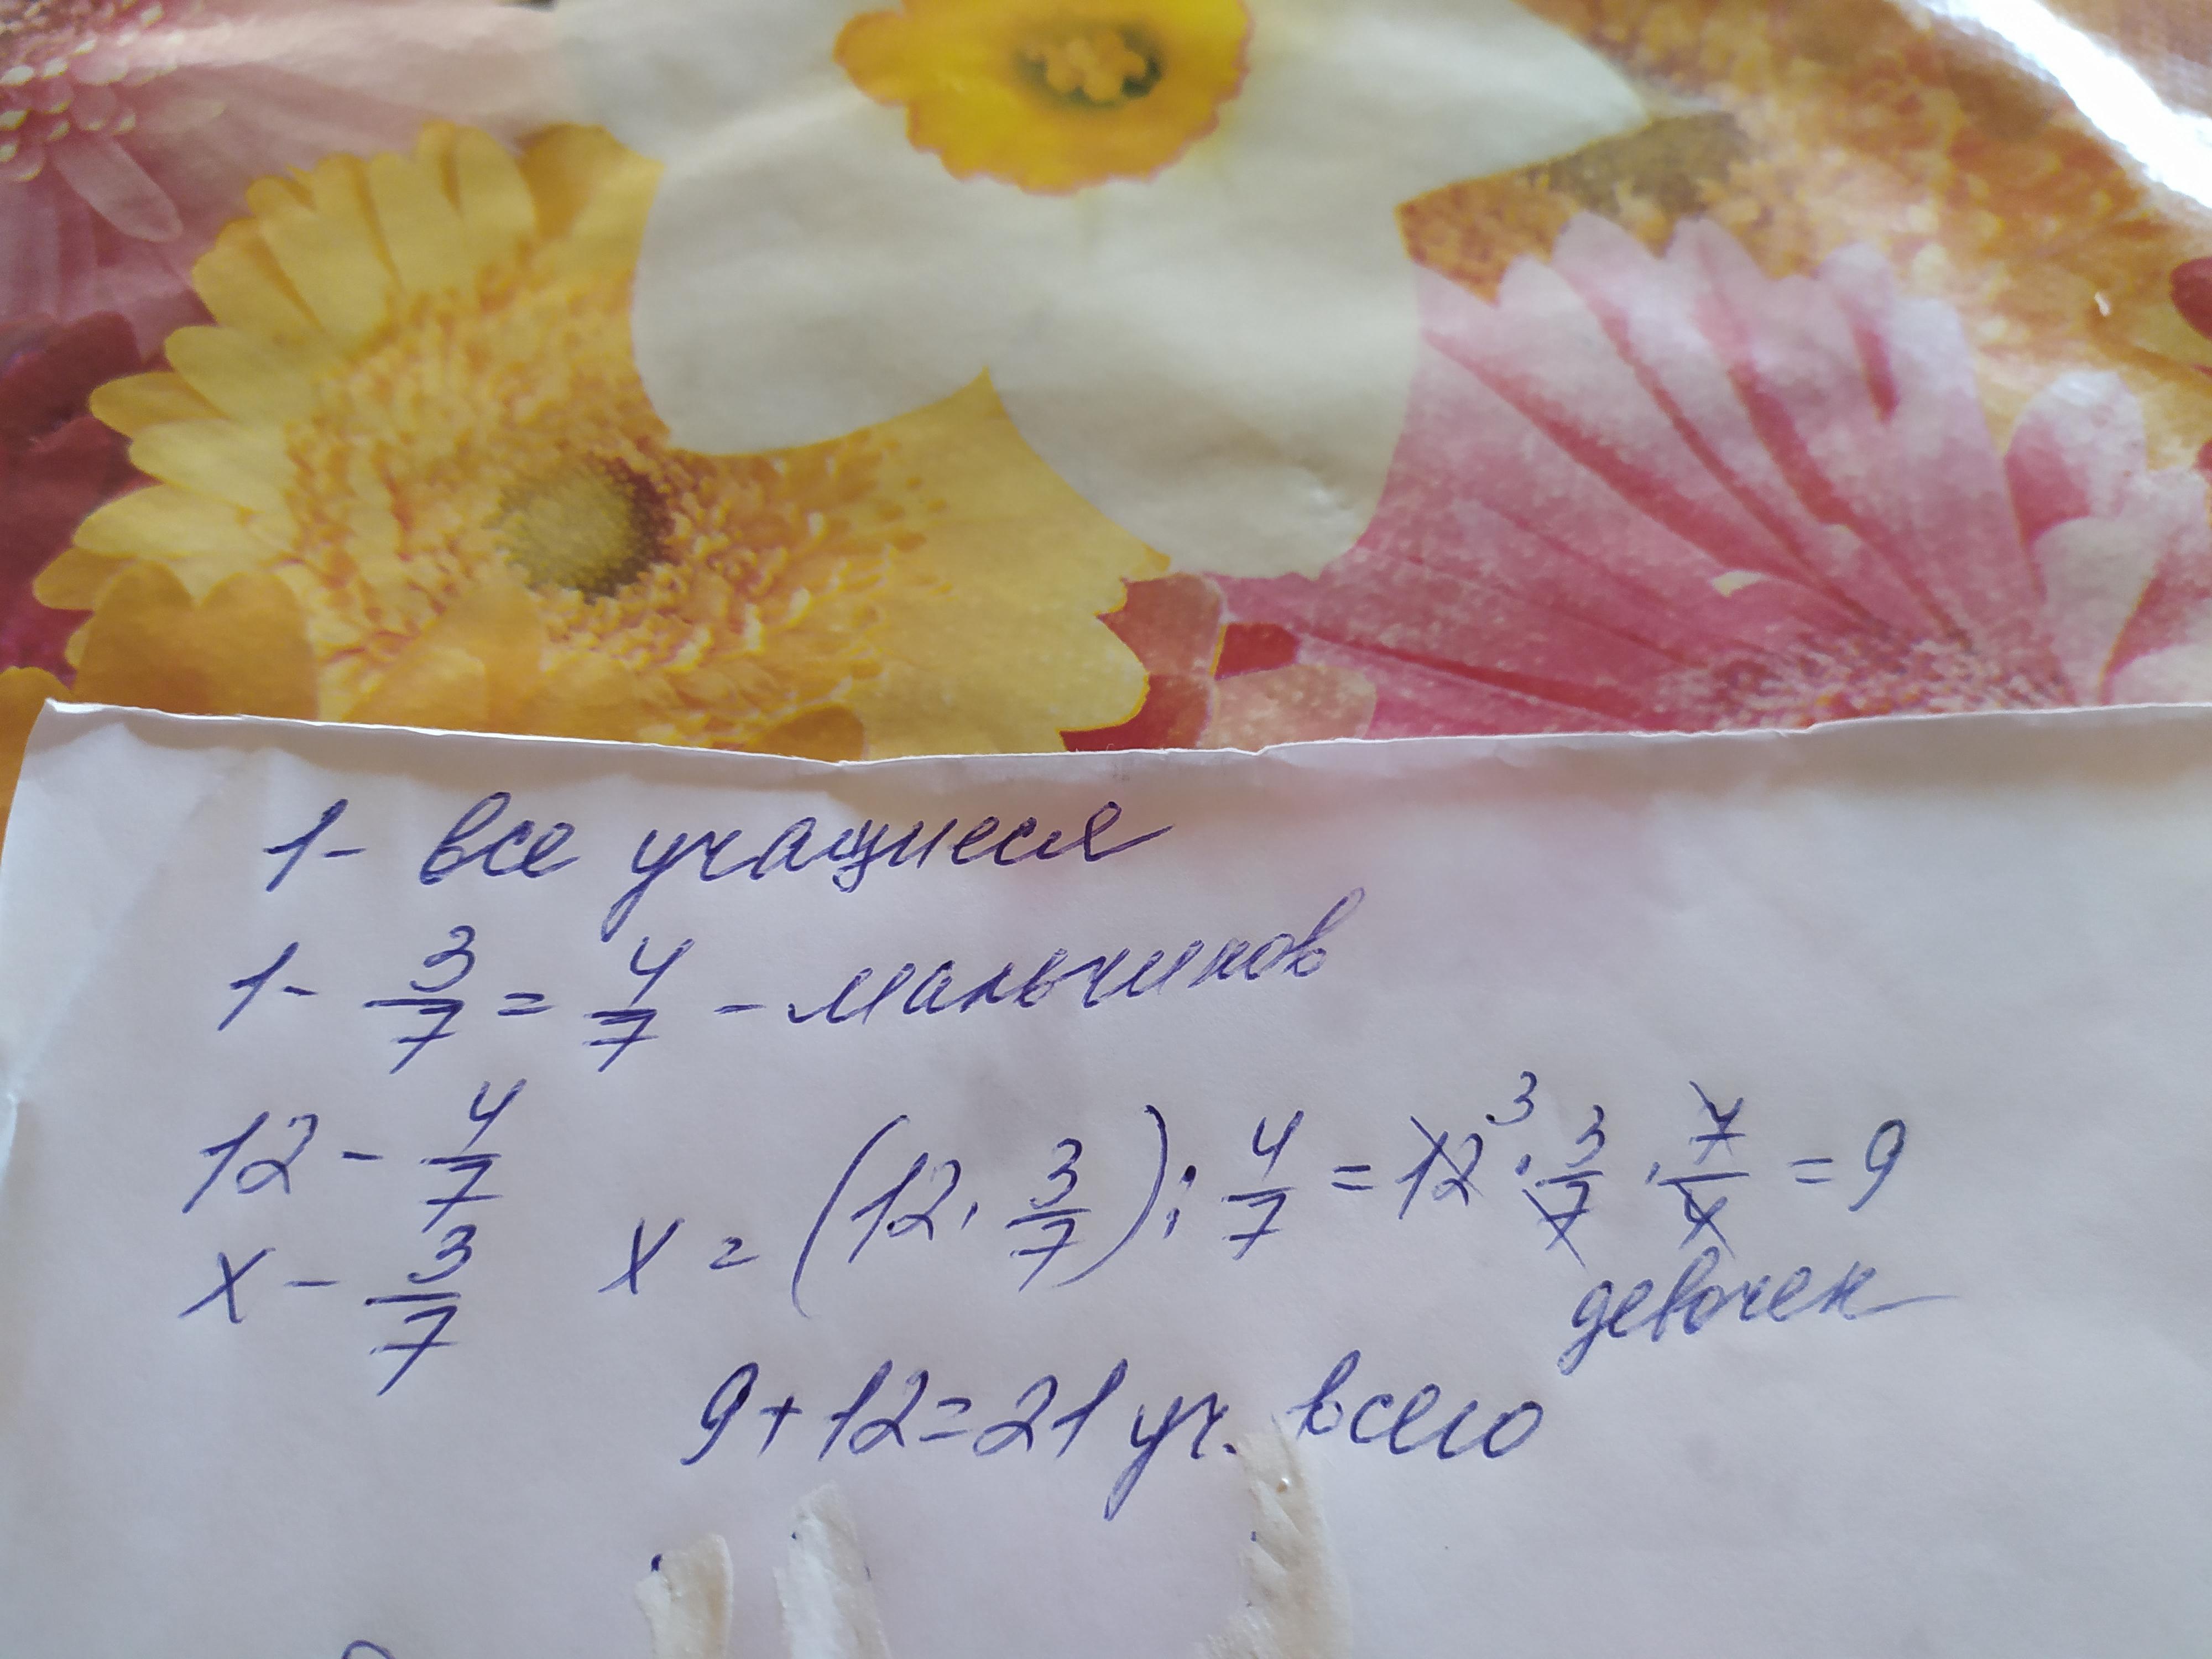 1- все учащиеся
1- 3/7 = 4/7 - мальчиков
12 - 4/7
x - 3/7 x = (12 · 3/7) : 4/7 = 12 3 · 3/7 · 7/4 = 9
девочек
9+12=21 уч. всего